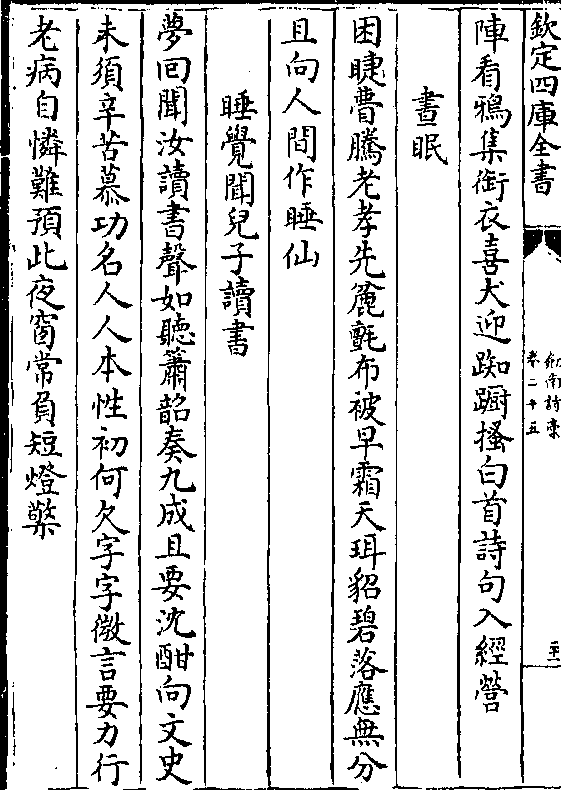 欽定四庫全書
劍南詩稾
卷二十五
二十一
陣看鴉集銜衣喜犬迎踟蹰搔白首詩句入經營
晝眠
困睫瞢騰老孝先麄氈布被早霜天珥貂碧落應無分
且向人間作睡仙
睡覺聞兒子讀書
夢回聞汝讀書聲如聽簫韶奏九成且要沈酣向文史
未須辛苦慕功名人人本性初何欠字字微言要力行
老病自憐難預此夜窗常負短燈檠